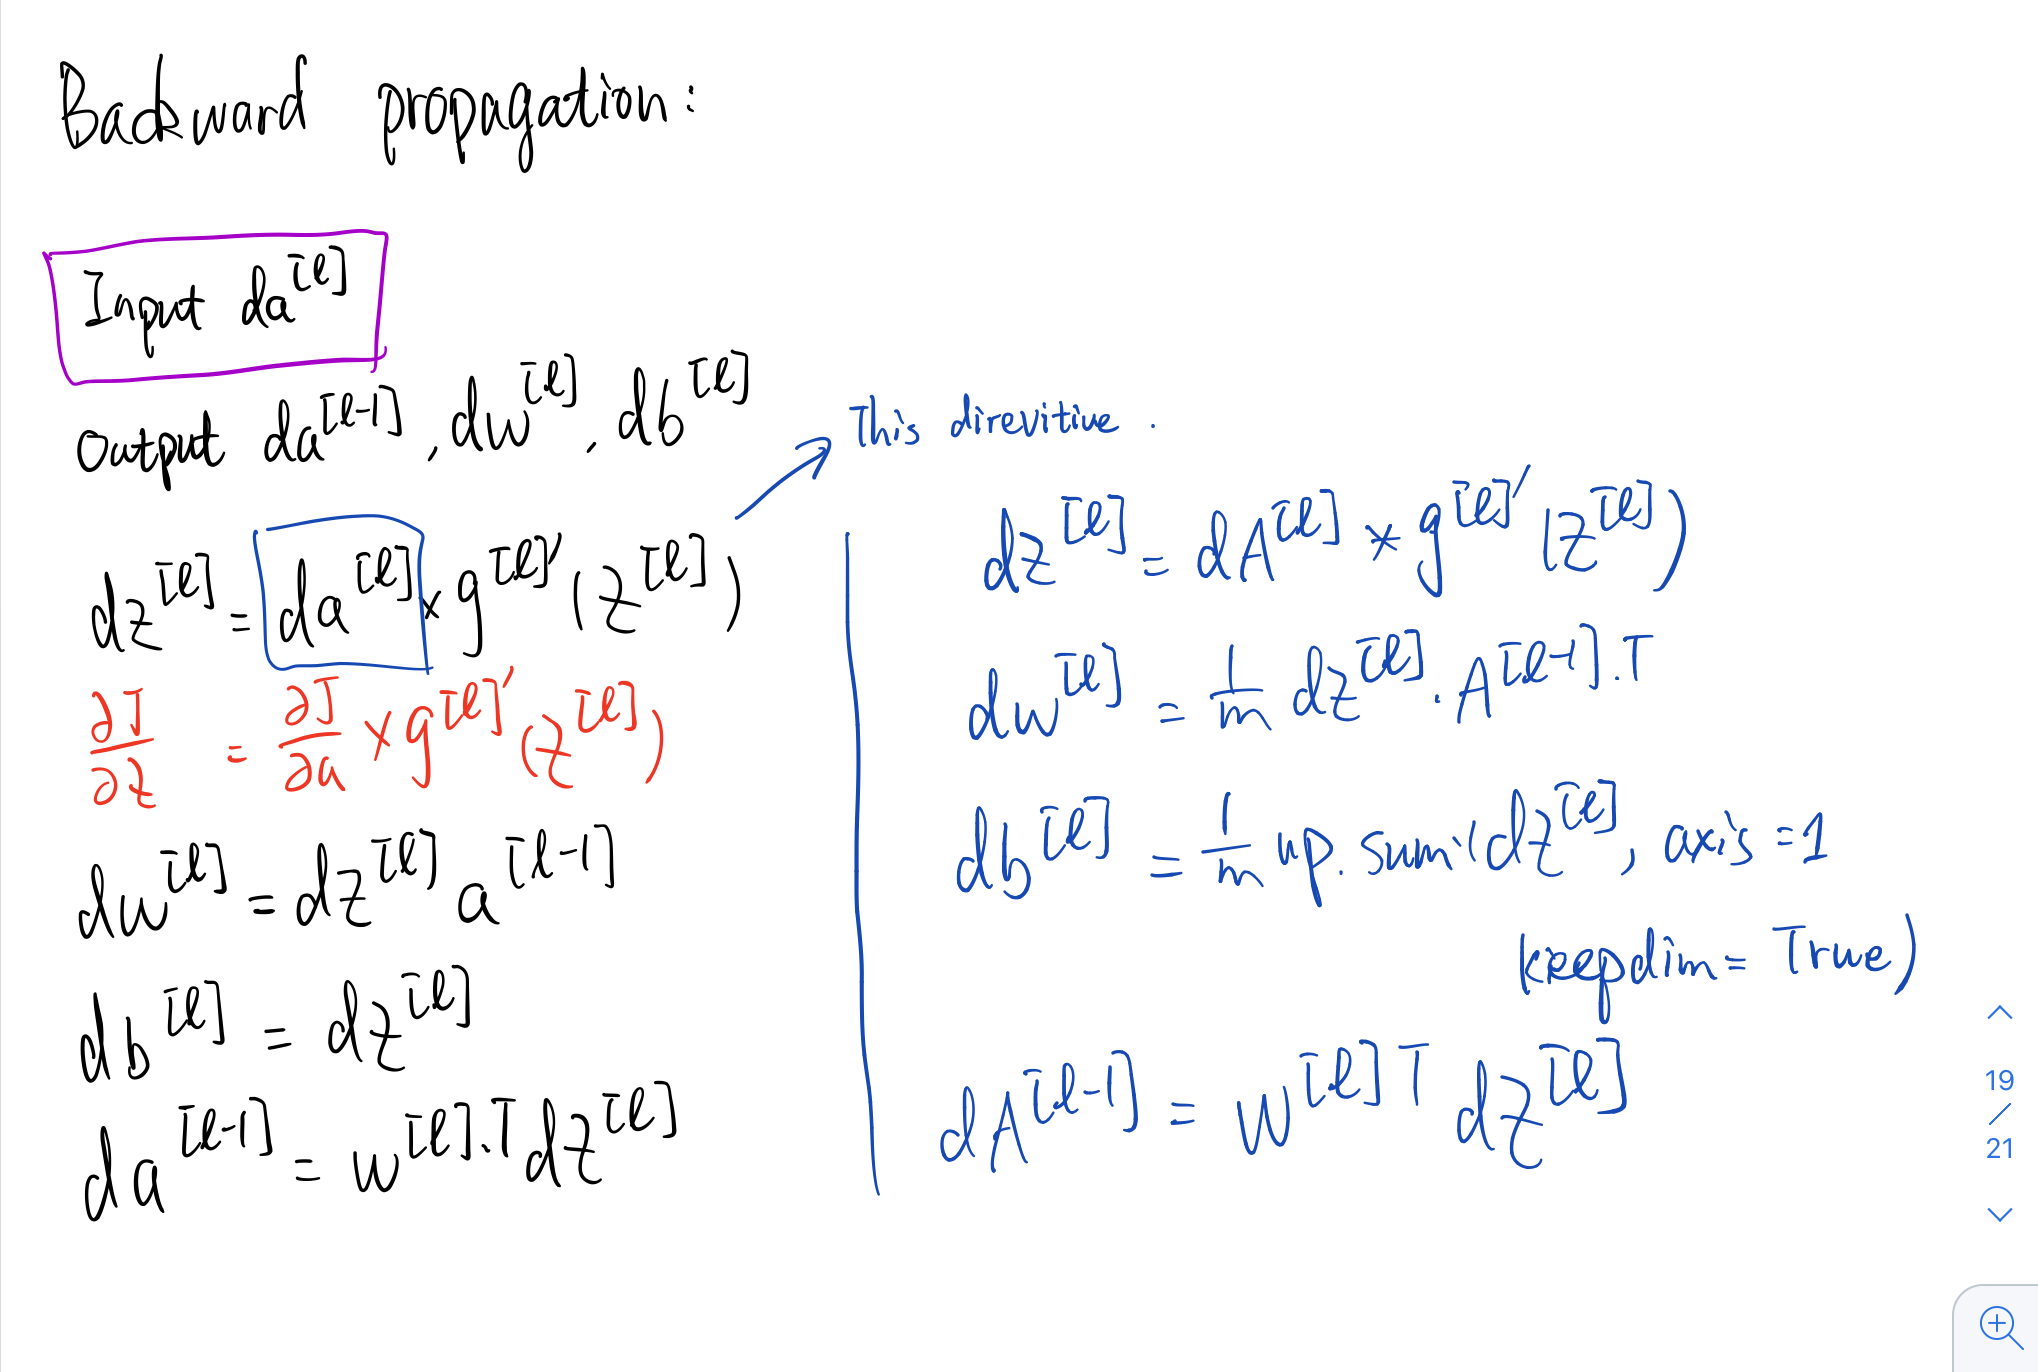 Backward propagation:
Input da^[l]
Output da^[l-1], dw^[l], db^[l]
dz^[l] = da^[l] × g^[l]'(z^[l])
∂J/∂z = ∂J/∂a × g^[l]'(z^[l])
dw^[l] = dz^[l] a^[l-1]
db^[l] = dz^[l]
da^[l-1] = w^[l].T dz^[l]
This direvitive.
dz^[l] = dA^[l] * g^[l]'(z^[l])
dw^[l] = 1/m dz^[l] . A^[l-1].T
db^[l] = 1/m np.sum(dz^[l], axis=1
keepdim= True)
dA^[l-1] = w^[l]T dz^[l]
19
/
21